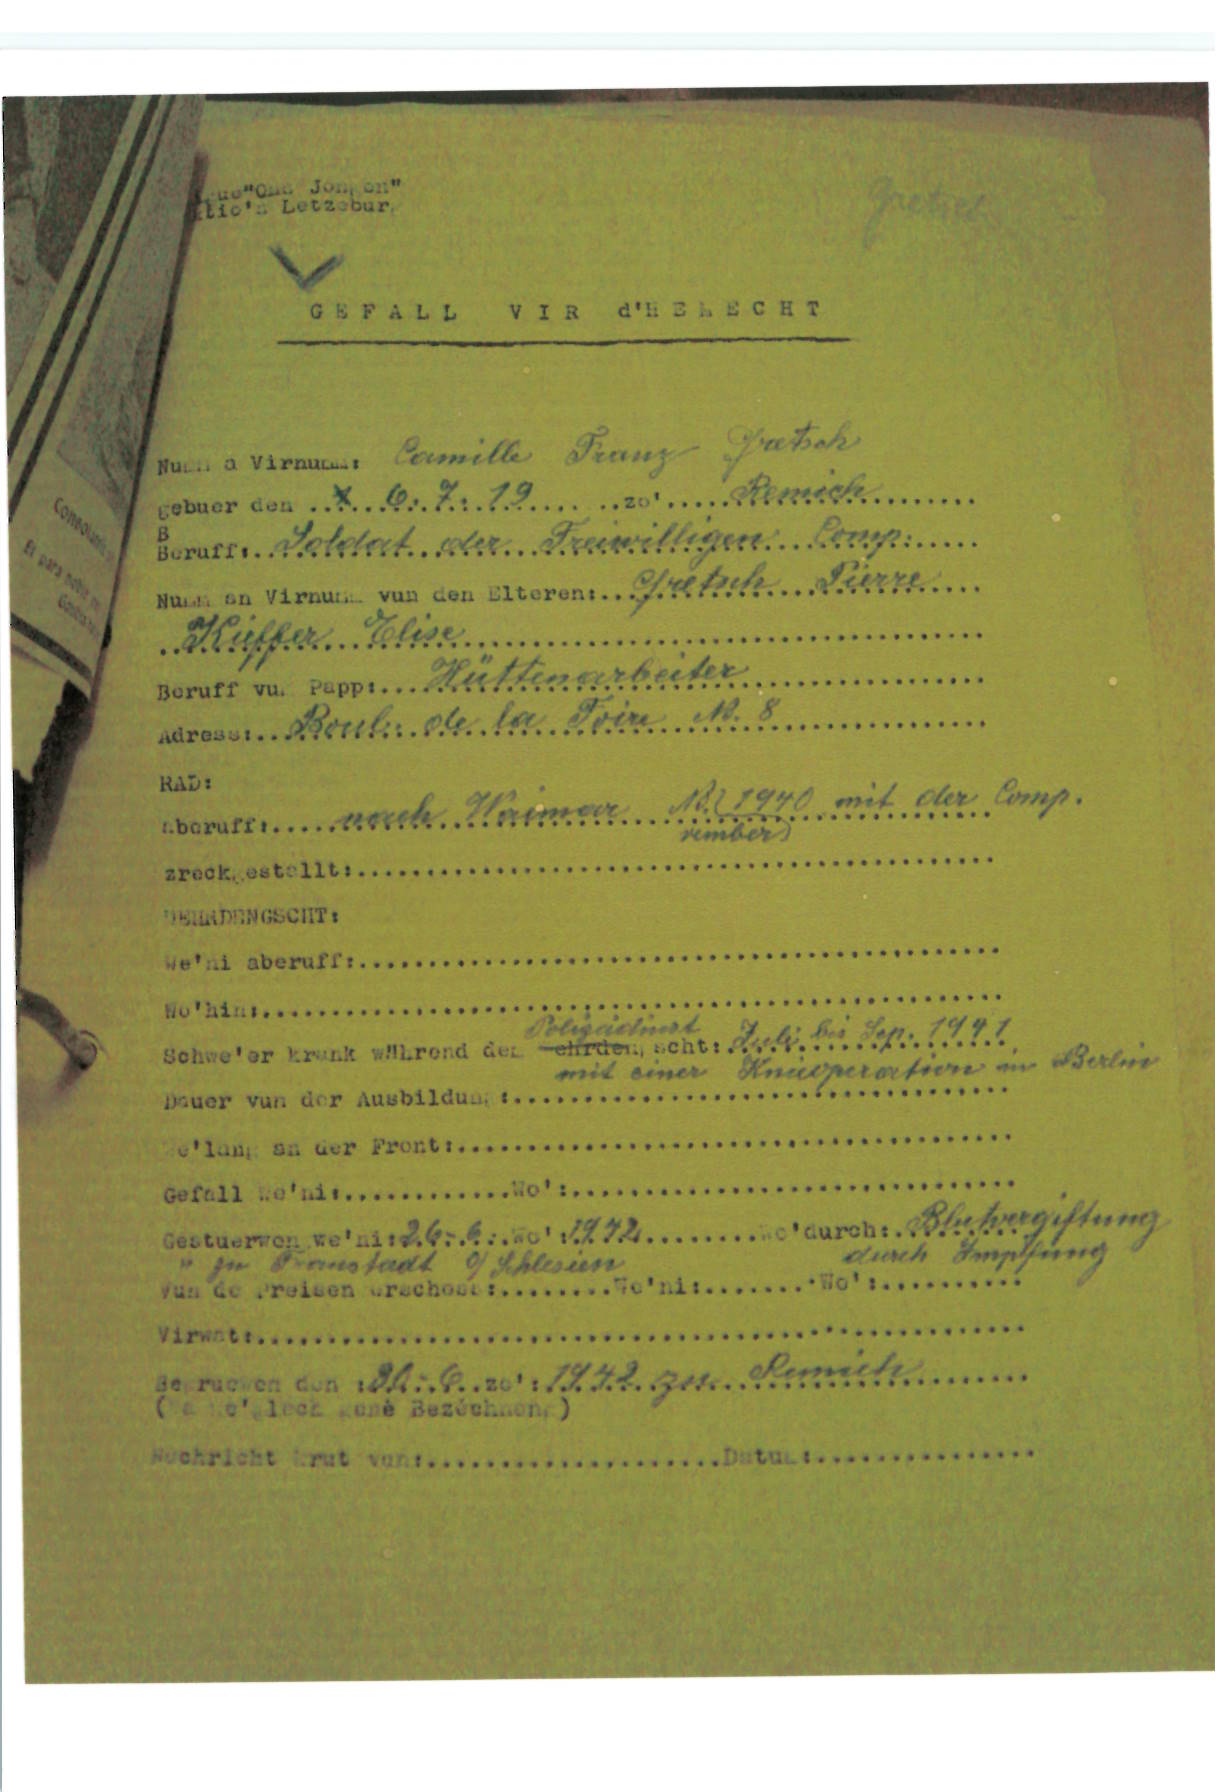 "Ons Jongen"
Letzeburg
Gretsch
GEFALL VIR d'HEMECHT
Numm a Virnumm: Camille Franz Gretsch
gebuer den ..x..6.7.19.... ..zo'.....Remich.........
B
Beruff:..Soldat der Freiwilligen Comp......
Numm an Virnumm vun den Elteren:...Gretsch Pierre....
..Kieffer Elise...............................
Beruff vum Papp:...Hüttenarbeiter..................
Adress:..Boul. de la Foire N. 8...............
RAD:
aberuff:.....nach Waimar N.(1940 mit der Comp.
vember)
zreckgestellt:........................................
WEHRDENGSCHT:
We'ni aberuff:........................................
Wo'hin:...............................................
Polizeidienst
Schwe'er krank während dem ehrdengscht:.Juli bis Sep. 1941
mit einer Knieoperation in Berlin
Dauer vun der Ausbildung:...............................
We'lang an der Front:...................................
Gefall we'ni:............Wo':...............................
Gestuerwen we'ni:26.6...Wo':1942.........Wo'durch:.Blutvergiftung
" zu Fraustadt o/ Schlesien durch Impfung
Vun de Preisen erschoss:........We'ni:....... .Wo':..........
Virwat:...............................................
Begruewen den :30.6..zo':1942 zu Remich........
Bezéchnung)
Nochricht krut vun:.....................Datum:...............